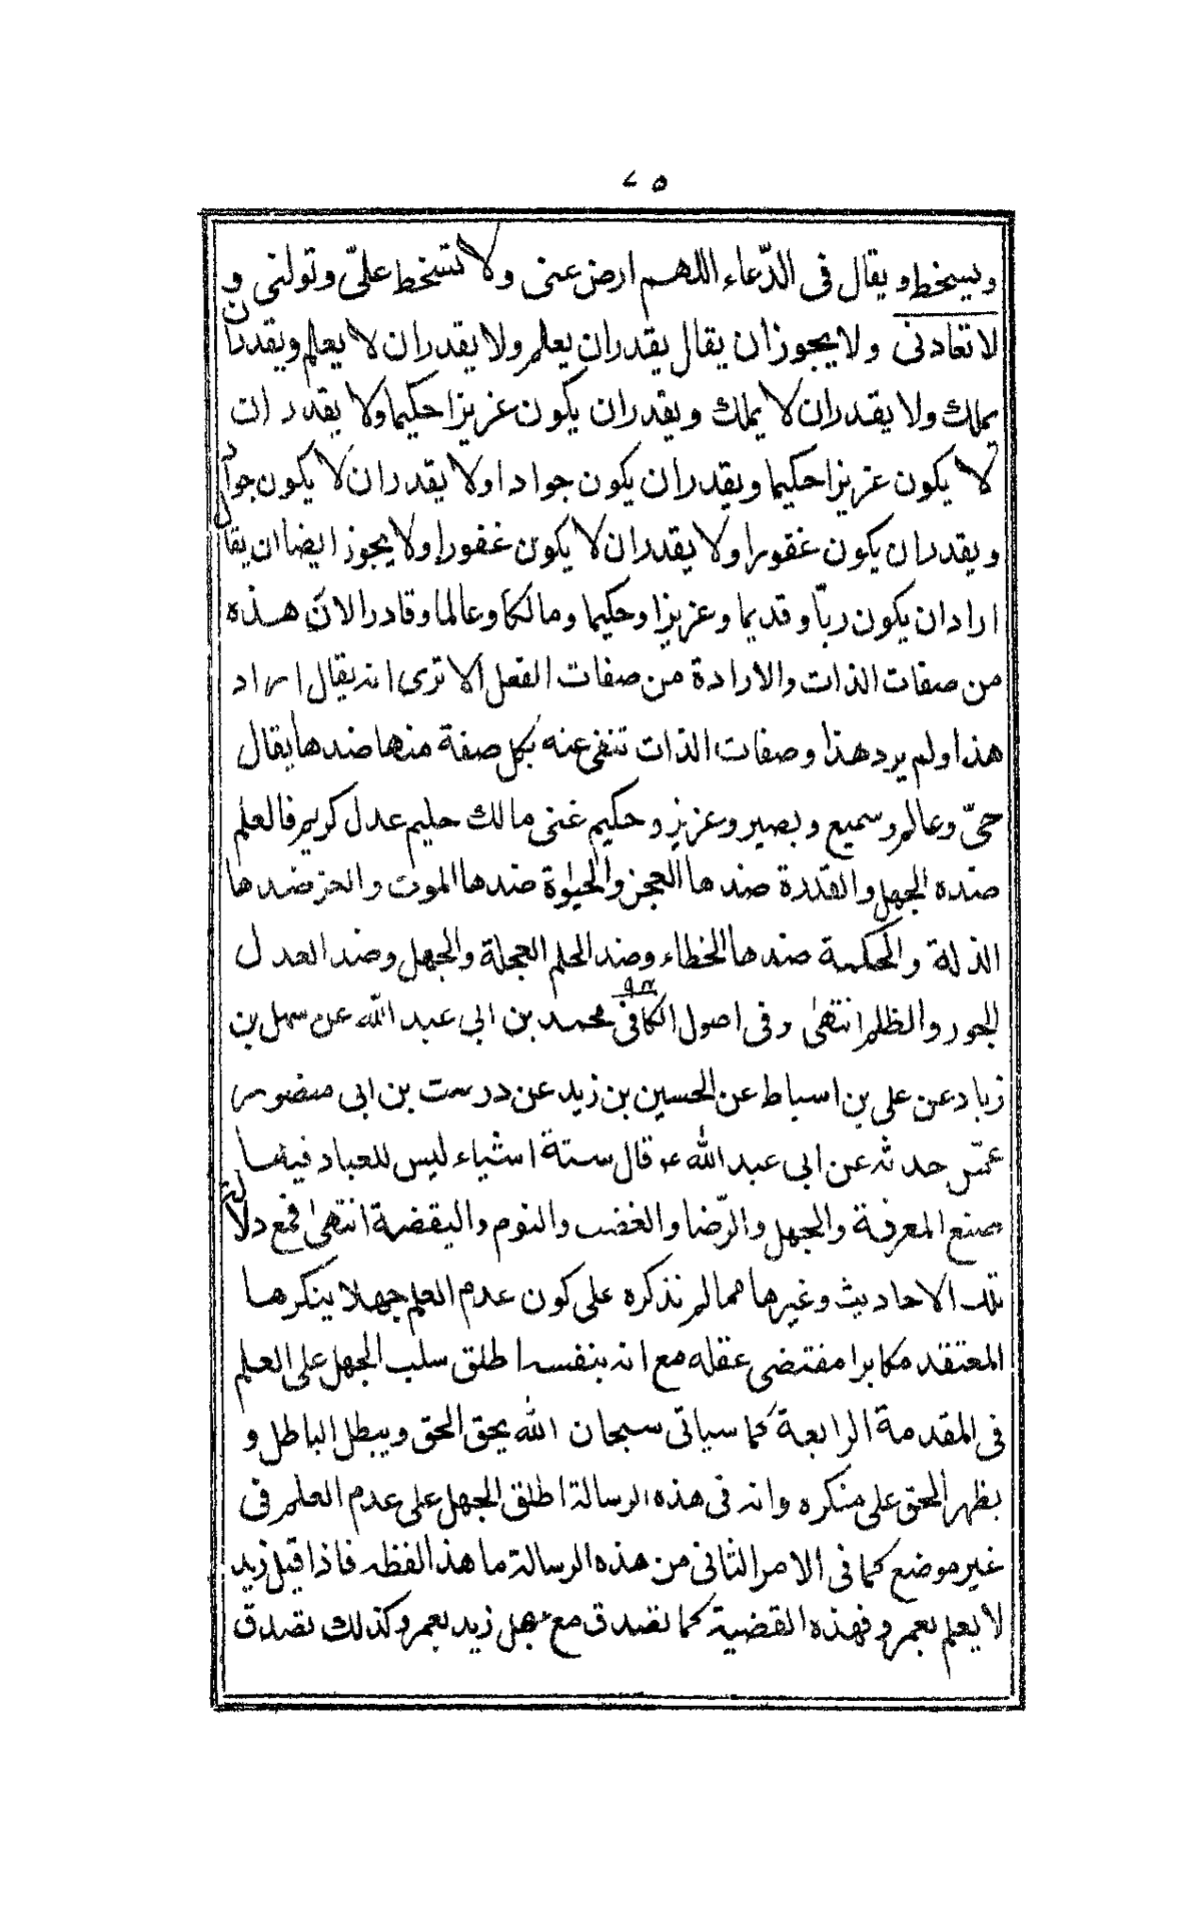 ٧٥
ويسخط ويقال فى الدّعاء اللهم ارض عنى ولا تسخط علىّ وتولنى و
لا تعادنى ولا يجوز ان يقال يقدر ان يعلم ولا يقدر ان لا يعلم ويقدر ان
يملك ولا يقدر ان لا يملك ويقدر ان يكون عزيزا حكيما ولا يقدر ان
لا يكون عزيزا حكيما ويقدر ان يكون جوادا ولا يقدر ان لا يكون جوادا
ويقدر ان يكون غفورا ولا يقدر ان لا يكون غفورا ولا يجوز ايضا ان يقال
اراد ان يكون ربّا وقديما وعزيزا وحكيما ومالكا وعالما وقادرا لان هذه
من صفات الذات والارادة من صفات الفعل الا ترى انه يقال اراد
هذا ولم يرد هذا وصفات الذات تنفى عنه بكل صفة منها ضدها يقال
حىّ وعالم وسميع وبصير وعزيز وحكيم غنى مالك حليم عدل كريم فالعلم
ضده الجهل والقدرة ضدها العجز والحيوة ضدها الموت والعز ضدها
الذلة والحكمة ضدها الخطاء وضد الحلم العجلة والجهل وضد العدل
الجور والظلم انتهى وفى اصول الكافى محمد بن ابى عبد الله عن سهل بن
زياد عن على بن اسباط عن الحسين بن زيد عن درست بن ابى منصور
عمّن حدثه عن ابى عبد الله ع قال ستة اشياء ليس للعباد فيها
صنع المعرفة والجهل والرّضا والغضب والنوم واليقضة انتهى فمع دلالة
تلك الاحاديث وغيرها مما لم نذكره على كون عدم العلم جهلا ينكرها
المعتقد مكابرا مقتضى عقله مع انه بنفسه اطلق سلب الجهل على العلم
فى المقدمة الرابعة كما سياتى سبحان الله يحق الحق ويبطل الباطل و
يظهر الحق على منكره وانه فى هذه الرسالة اطلق الجهل على عدم العلم فى
غير موضع كما فى الامر الثانى من هذه الرسالة ما هذا لفظه فاذا قيل زيد
لا يعلم بعمرو فهذه القضية كما تصدق مع جهل زيد بعمرو كذلك تصدق